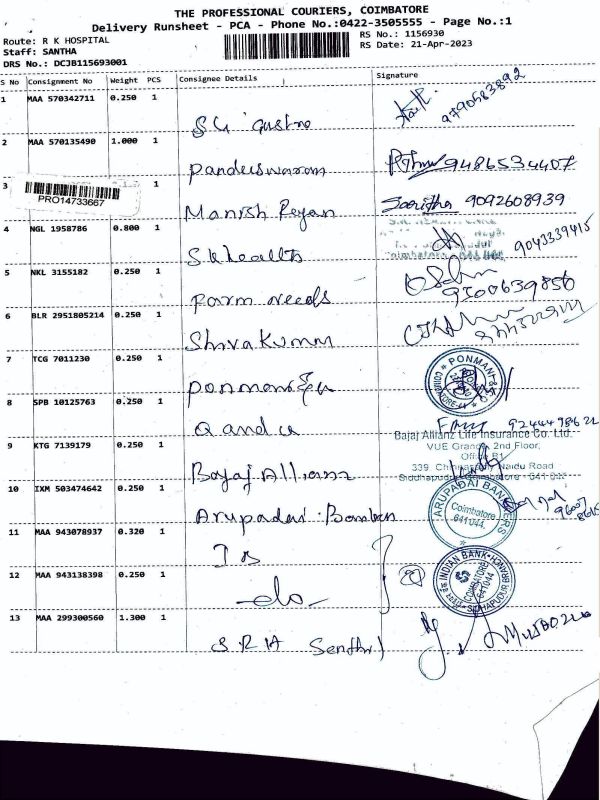 THE PROFESSIONAL COURIERS, COIMBATORE
Delivery Runsheet - PCA - Phone No.:0422-3505555 - Page No.:1
Route: R K HOSPITAL
RS No.: 1156930
Staff: SANTHA
RS Date: 21-Apr-2023
DRS No.: DCJB115693001
S No Consignment No Weight PCS Consignee Details Signature
1 MAA 570342711 0.250 1
9790683892
2 MAA 570135490 1.000 1
Pandeeswaran 9486534407
3
PRO14733667
Manish Saritha 9092608939
4 NGL 1958786 0.800 1
9043339415
5 NKL 3155182 0.250 1
Farm needs 9500639856
6 BLR 2951805214 0.250 1
Shiva Kumar
7 TCG 7011230 0.250 1
PONMANI
COIMBATORE
8 SPB 10125763 0.250 1
Q and A
9 KTG 7139179 0.250 1
Bajaj Allianz Life Insurance Co. Ltd.
VUE Grande, 2nd Floor,
Office B1
339, Chinnasamy Naidu Road
Bajaj Allianz
10 IXM 503474642 0.250 1
Arupadai Bankers
ARUPADAI BANKERS
Coimbatore
641 044.
11 MAA 943078937 0.320 1
IB
12 MAA 943138398 0.250 1
-do-
INDIAN BANK
COIMBATORE
641044
SIDHAPUDUR BRANCH
13 MAA 299300560 1.300 1
S R H Senthil